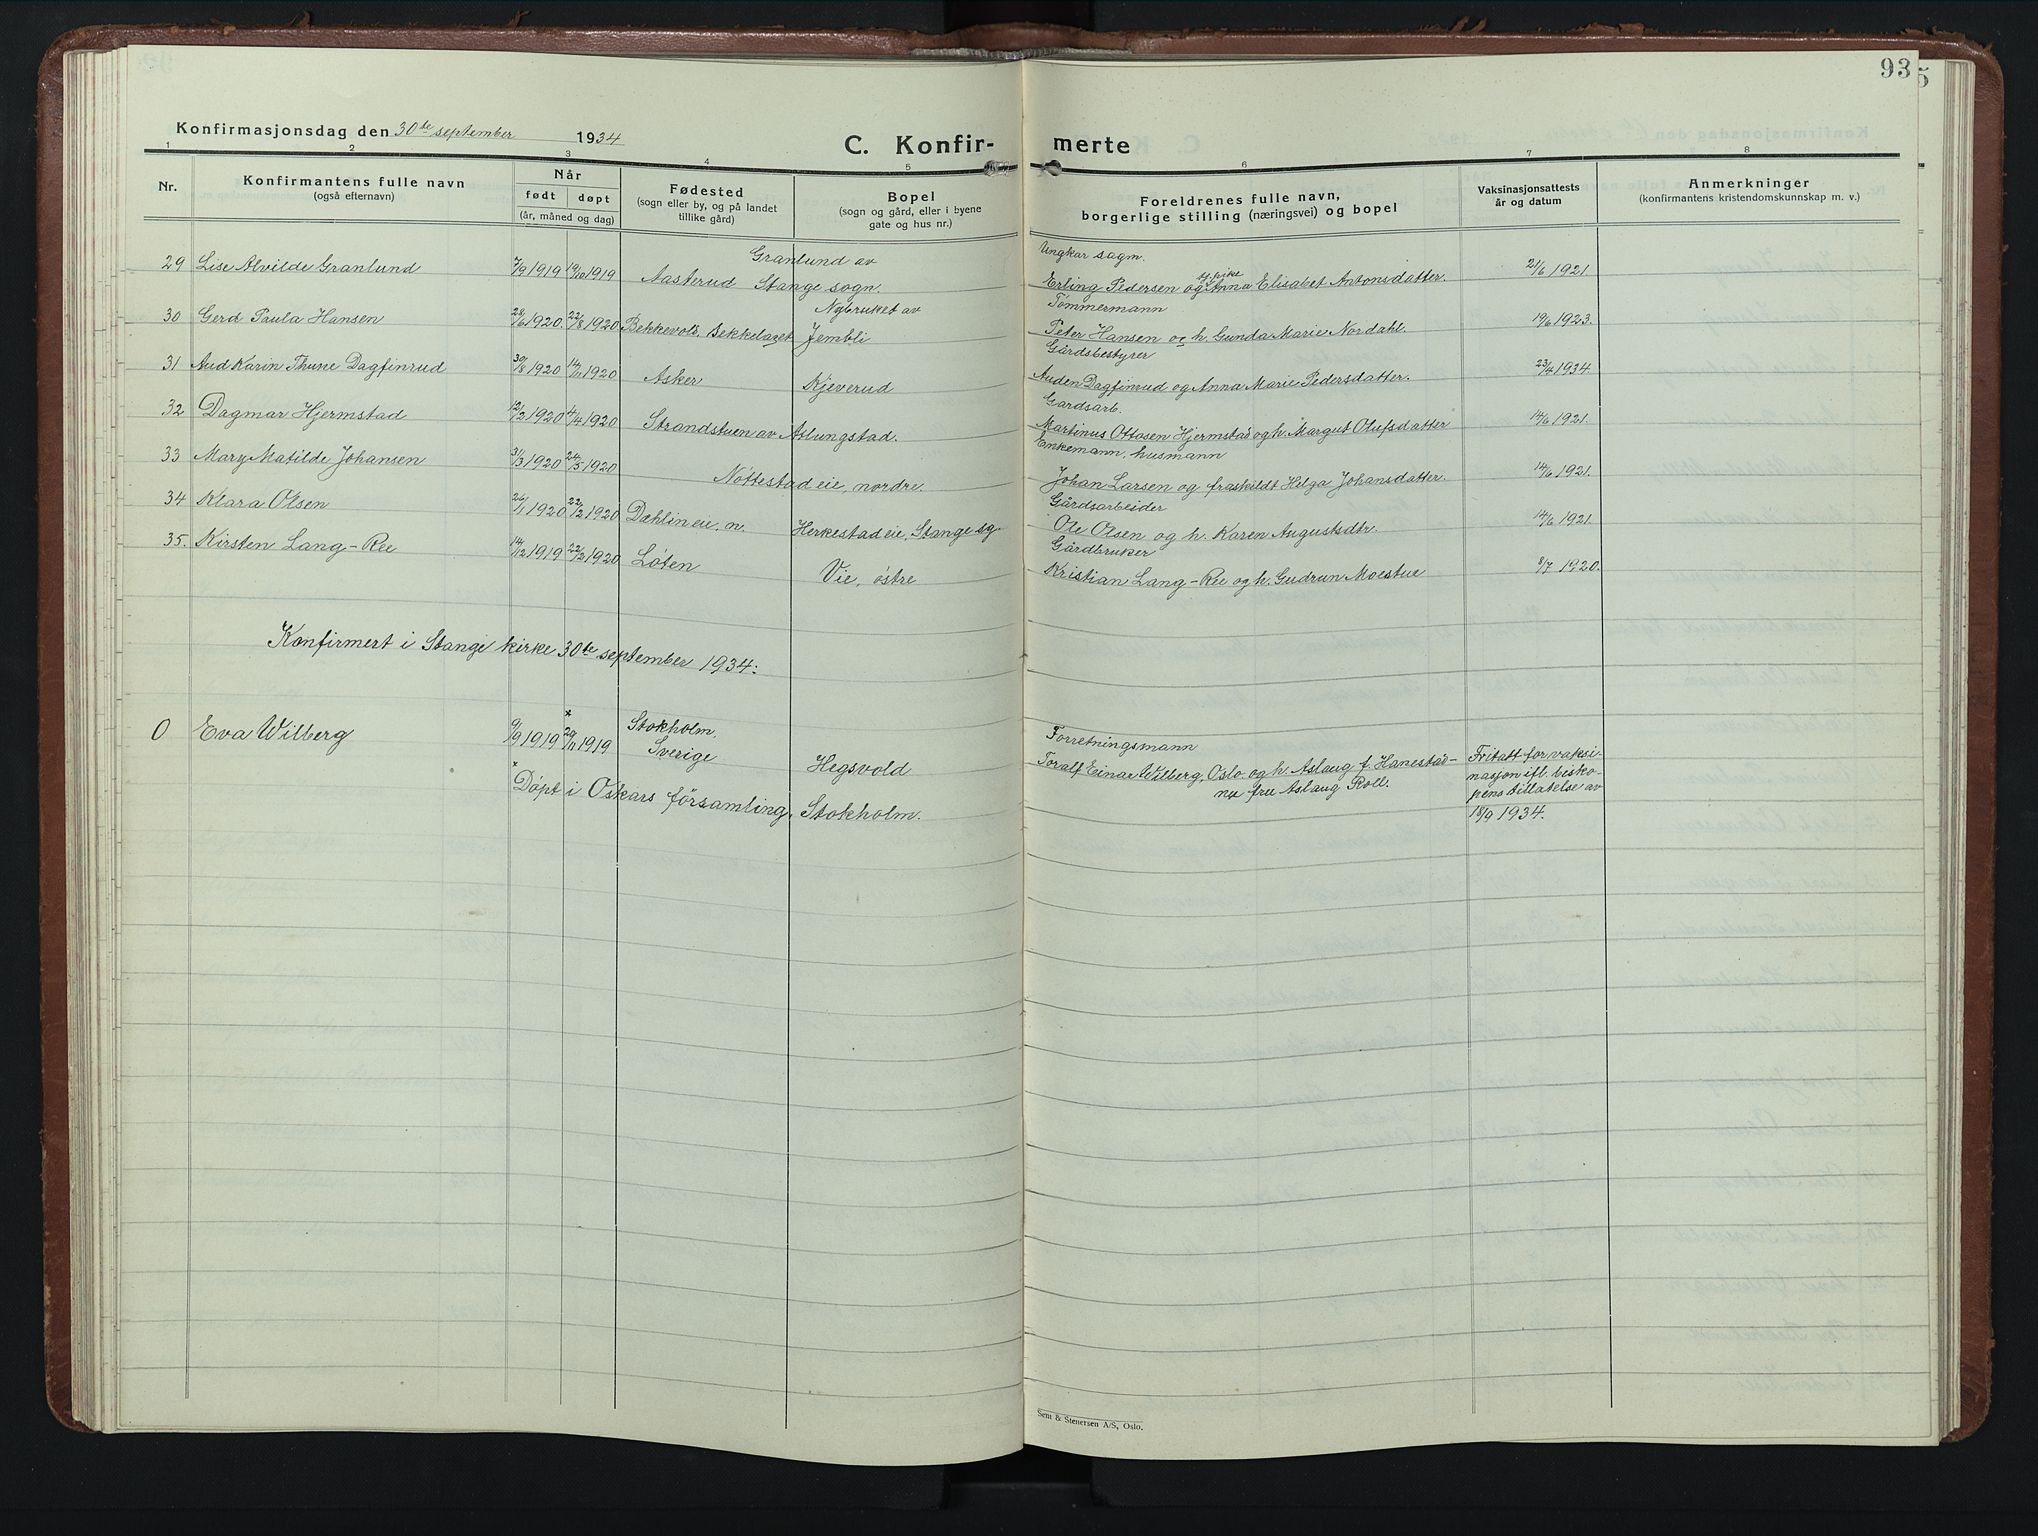 93
5
Konfirmasjonsdag den 30te september 1934
C. Konfirmerte
1 2 3 4 5 6 7 8
Nr.
Konfirmantens fulle navn
(også efternavn)
Når
født døpt
(år, måned og dag)
Fødested
(sogn eller by, og på landet
tillike gård)
Bopel
(sogn og gård, eller i byene
gate og hus nr.)
Foreldrenes fulle navn,
borgerlige stilling (næringsvei) og bopel
Vaksinasjonsattests
år og datum
Anmerkninger
(konfirmantens kristendomskunnskap m. v.)
Granlund av Ungkar sagm.
29 Lise Alvilde Granlund 7/9 1919 19/10 1919 Aasterud Stange sogn. Erling Pedersen og pike Anna Elisabet Antonsdatter. 21/6 1921.
Nybruket av Tømmermann
30 Gerd Paula Hansen 28/6 1920. 22/8 1920 Bekkevold, Bekkelaget Jembli Peter Hansen og h. Gunda Marie Nordahl. 19/6 1923.
Gårdsbestyrer
31 Aud Karin Thune Dagfinrud 30/8 1920 14/11 1920 Asker Kjeverud Auden Dagfinrud og Anna Marie Pedersdatter. 23/4 1934
Gardsarb.
32 Dagmar Hjermstad 12/2 1920 4/4 1920 Strandstuen av Atlungstad. Martinus Ottosen Hjermstad og h. Margit Olufsdatter 14/6 1921.
Enkemann, husmann
33 Mary Matilde Johansen 31/3 1920 24/5 1920 Nøttestad eie, nordre. Johan Larsen og fraskildt Helga Johansdatter. 14/6 1921.
Gårdsarbeider
34 Klara Olsen 26/1 1920 22/2 1920 Dæhlin eie, n. Herkestad eie, Stange sg. Ole Olsen og h. Karen Augustsdtr. 14/6 1921.
Gårdbruker
35. Kirsten Lang-Ree 14/12 1919 22/2 1920 Løten Vie, østre Kristian Lang-Ree og h. Gudrun Moestue 8/7 1920.
Konfirmert i Stange kirke 30te september 1934:
0 Eva Wilberg 9/9 1919 x 29/11 1919 Stokholm, Sverige Hegsvold
Forretningsmann
Toralf Einar Wilberg, Oslo og h. Aslaug f. Hanestad-
nu fru Aslaug Roll.
Fritatt for vaksi-
nasjon ifl. bisko-
pens tillatelse av
18/9 1934.
x Døpt i Oskars församling, Stokholm.
Sem & Stenersen A/S, Oslo.